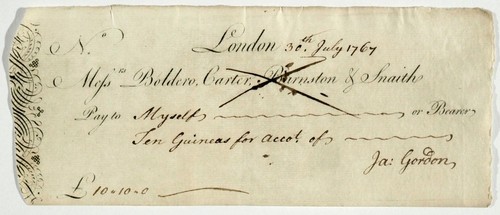 No. London 30th July 1767
Messrs Boldero, Carter, Barnston & Snaith
Pay to Myself or Bearer
Ten Guineas for Accot. of
Ja: Gordon
£ 10=10=0